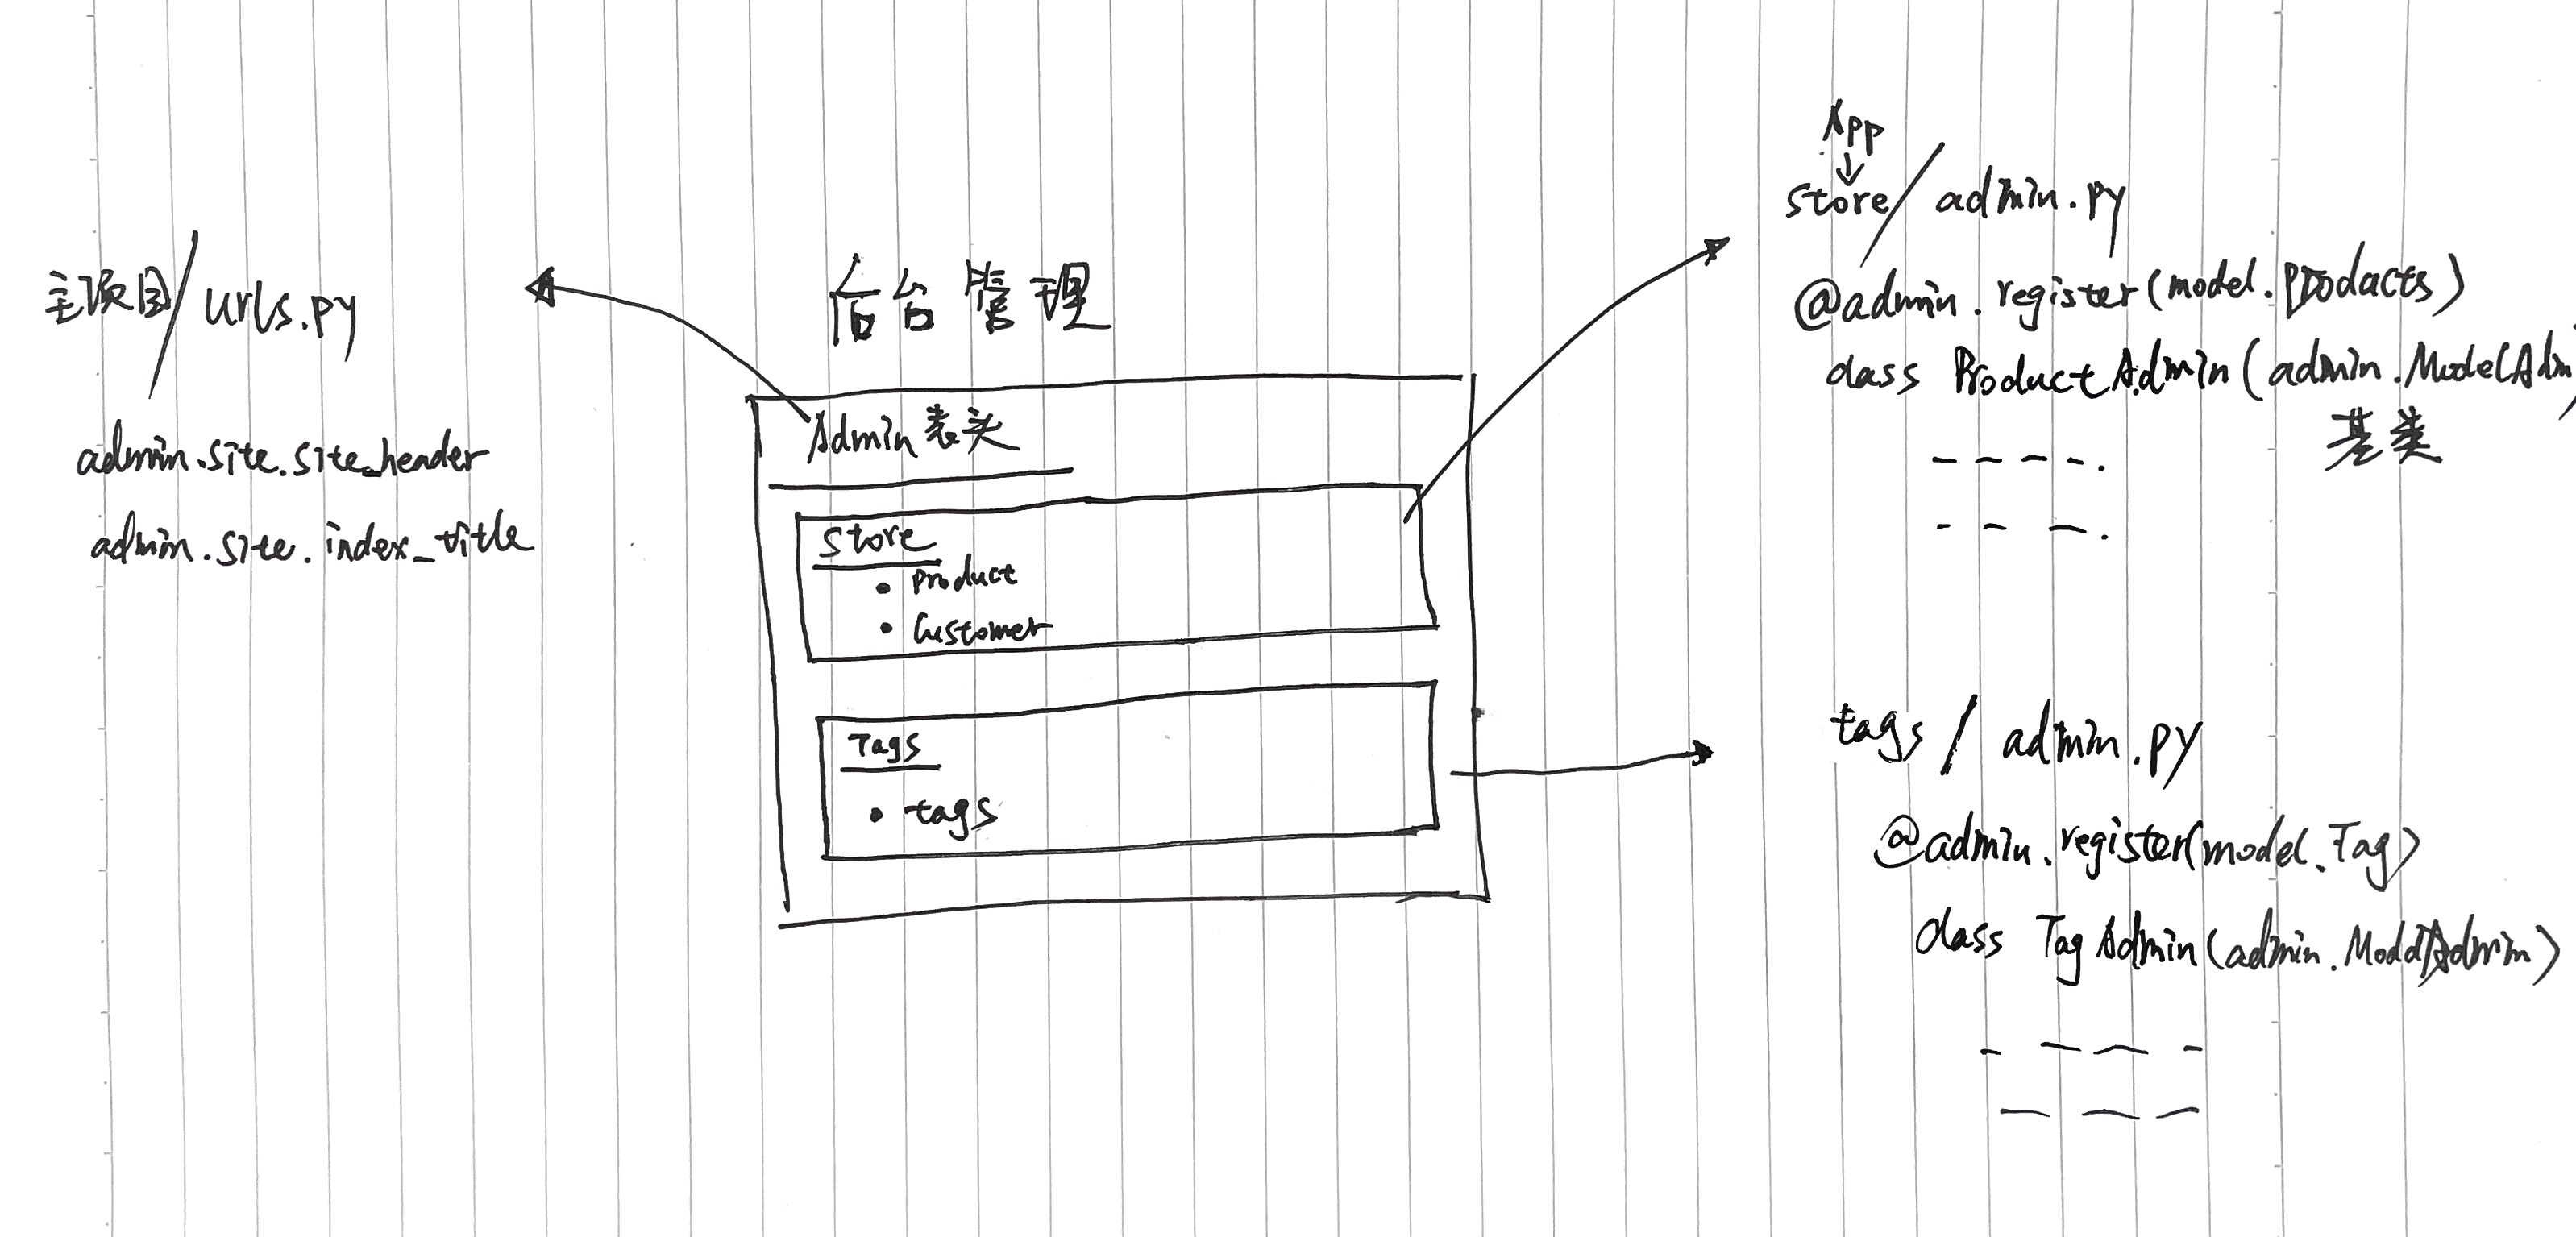 主项目/urls.py
admin.site.site_header
admin.site.index_title
后台管理
Admin 表头
Store
• Product
• Customer
Tags
• tags
App
↓
store/admin.py
@admin.register(model.products)
class ProductAdmin(admin.ModelAdm)
基类
tags/admin.py
@admin.register(model.Tag)
class TagAdmin(admin.ModelAdmin)